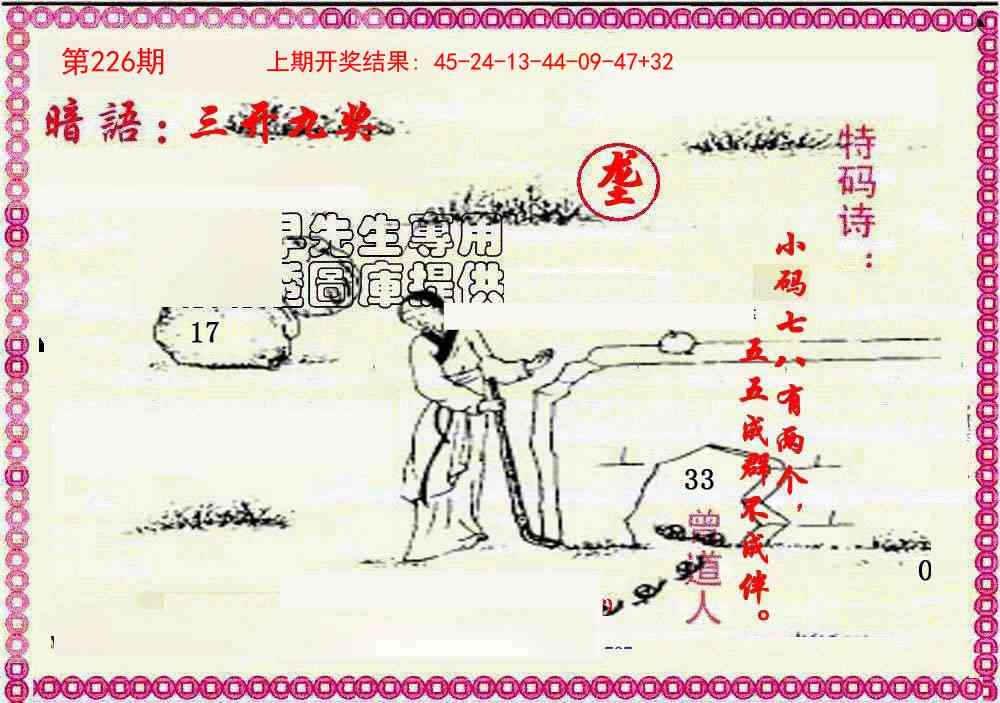 第226期
上期开奖结果: 45-24-13-44-09-47+32
暗語：三开九奖
垄
特码诗：
小码七八有两个，
五五成群不成伴。
先生專用
圖庫提供
17
33
曾道人
0